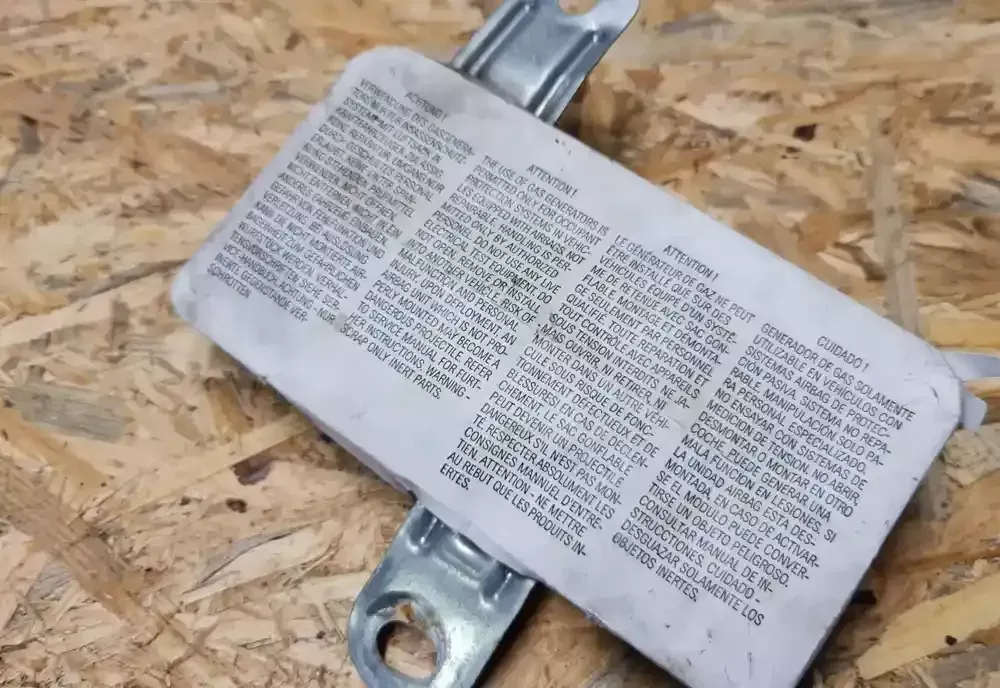 ACHTUNG !
VERWENDUNG DES GASGENERA-
TORS NUR FÜR INSASSENSCHUTZ-
SYSTEME MIT LUFTSACK IN
KRAFTFAHRZEUGEN ZULÄSSIG.
KEINE REPARATUR. UMGANG NUR
DURCH GESCHULTES PERSONAL
ERLAUBT. KEINE UNTER SPAN-
NUNG STEHENDEN PRÜFMITTEL
VERWENDEN. NICHT ÖFFNEN,
NICHT ENTFERNEN, NICHT IN EIN
ANDERES FAHRZEUG EINBAUEN.
GEFAHR VON FEHLFUNKTION UND
VERLETZUNG. BEI AUSLÖSUNG
KANN DIE NICHT MONTIERTE AIR-
BAGEINHEIT ZUM GEFÄHRLICHEN
WURFSTÜCK WERDEN. VERHAL-
TENSVORSCHRIFTEN SIEHE SER-
VICE-HANDBUCH. ACHTUNG - NUR
INERTE GEGENSTÄNDE VER-
SCHROTTEN
ATTENTION !
THE USE OF GAS GENERATORS IS
PERMITTED ONLY FOR OCCUPANT
PROTECTION SYSTEM IN VEHIC-
LES EQUIPPED WITH AIRBAGS. NOT
REPARABLE. HANDLING IS PER-
MITTED ONLY BY AUTHORIZED
PERSONS. DO NOT USE ANY LIVE
ELECTRICAL TEST EQUIPMENT. DO
NO OPEN, REMOVE OR INSTALL
INTO ANOTHER VEHICLE. RISK OF
MALFUNCTION AND PERSONAL
INJURY. UPON DEPLOYMENT, AN
AIRBAG UNIT WHICH IS NOT PRO-
PERLY MOUNTED MAY BECOME A
DANGEROUS PROJECTILE. REFER
TO SERVICE MANUAL FOR FURT-
HER INSTRUCTIONS. WARNING -
SCRAP ONLY INERT PARTS.
ATTENTION !
LE GÉNÉRATEUR DE GAZ NE PEUT
ÊTRE INSTALLÉ QUE SUR DES
VÉHICULES ÉQUIPÉ D'UN SYSTÈ-
ME DE RETENUE AVEC SAC GON-
FLABLE. MONTAGE ET DÉMONTA-
GE SEULEMENT PAR PERSONNEL
QUALIFIÉ. TOUTE RÉPARATION ET
TOUT CONTRÔLE AVEC APPAREILS
SOUS TENSION INTERDITS. NE JA-
MAIS OUVRIR NI RETIRER, NI
MONTER DANS UN AUTRE VÉHI-
CULE SOUS RISQUE DE FONC-
TIONNEMENT DÉFECTUEUX ET DE
BLESSURES! EN CAS DE DÉCLEN-
CHEMENT, LE SAC GONFLABLE
PEUT DEVENIR UN PROJECTILE
DANGEREUX S'IL N'EST PAS MON-
TÉ. RESPECTER ABSOLUMENT LES
CONSIGNES MANUEL D'ENTRE-
TIEN. ATTENTION - NE METTRE
AU REBUT QUE LES PRODUITS IN-
ERTES.
CUIDADO !
GENERADOR DE GAS SOLAMENTE
UTILIZABLE EN VEHÍCULOS CON
SISTEMAS AIRBAG DE PROTEC-
CIÓN PASIVA. SISTEMA NO REPA-
RABLE. MANIPULACIÓN SOLO PA-
RA PERSONAL ESPECIALIZADO.
NO ENSAYAR CON SISTEMAS DE
MEDICIÓN DE TENSIÓN. NO ABRIR,
DESMONTAR O MONTAR EN OTRO
COCHE, PUEDE GENERAR UNA
MALA FUNCIÓN EN LESIONES. SI
LA UNIDAD AIRBAG ESTÁ DES-
MONTADA, EN CASO DE ACTIVAR-
SE EL MÓDULO PUEDE CONVER-
TIRSE UN OBJETO PELIGROSO.
CONSULTAR MANUAL DE IN-
STRUCCIONES. CUIDADO -
DESGUAZAR SOLAMENTE LOS
OBJETOS INERTES.